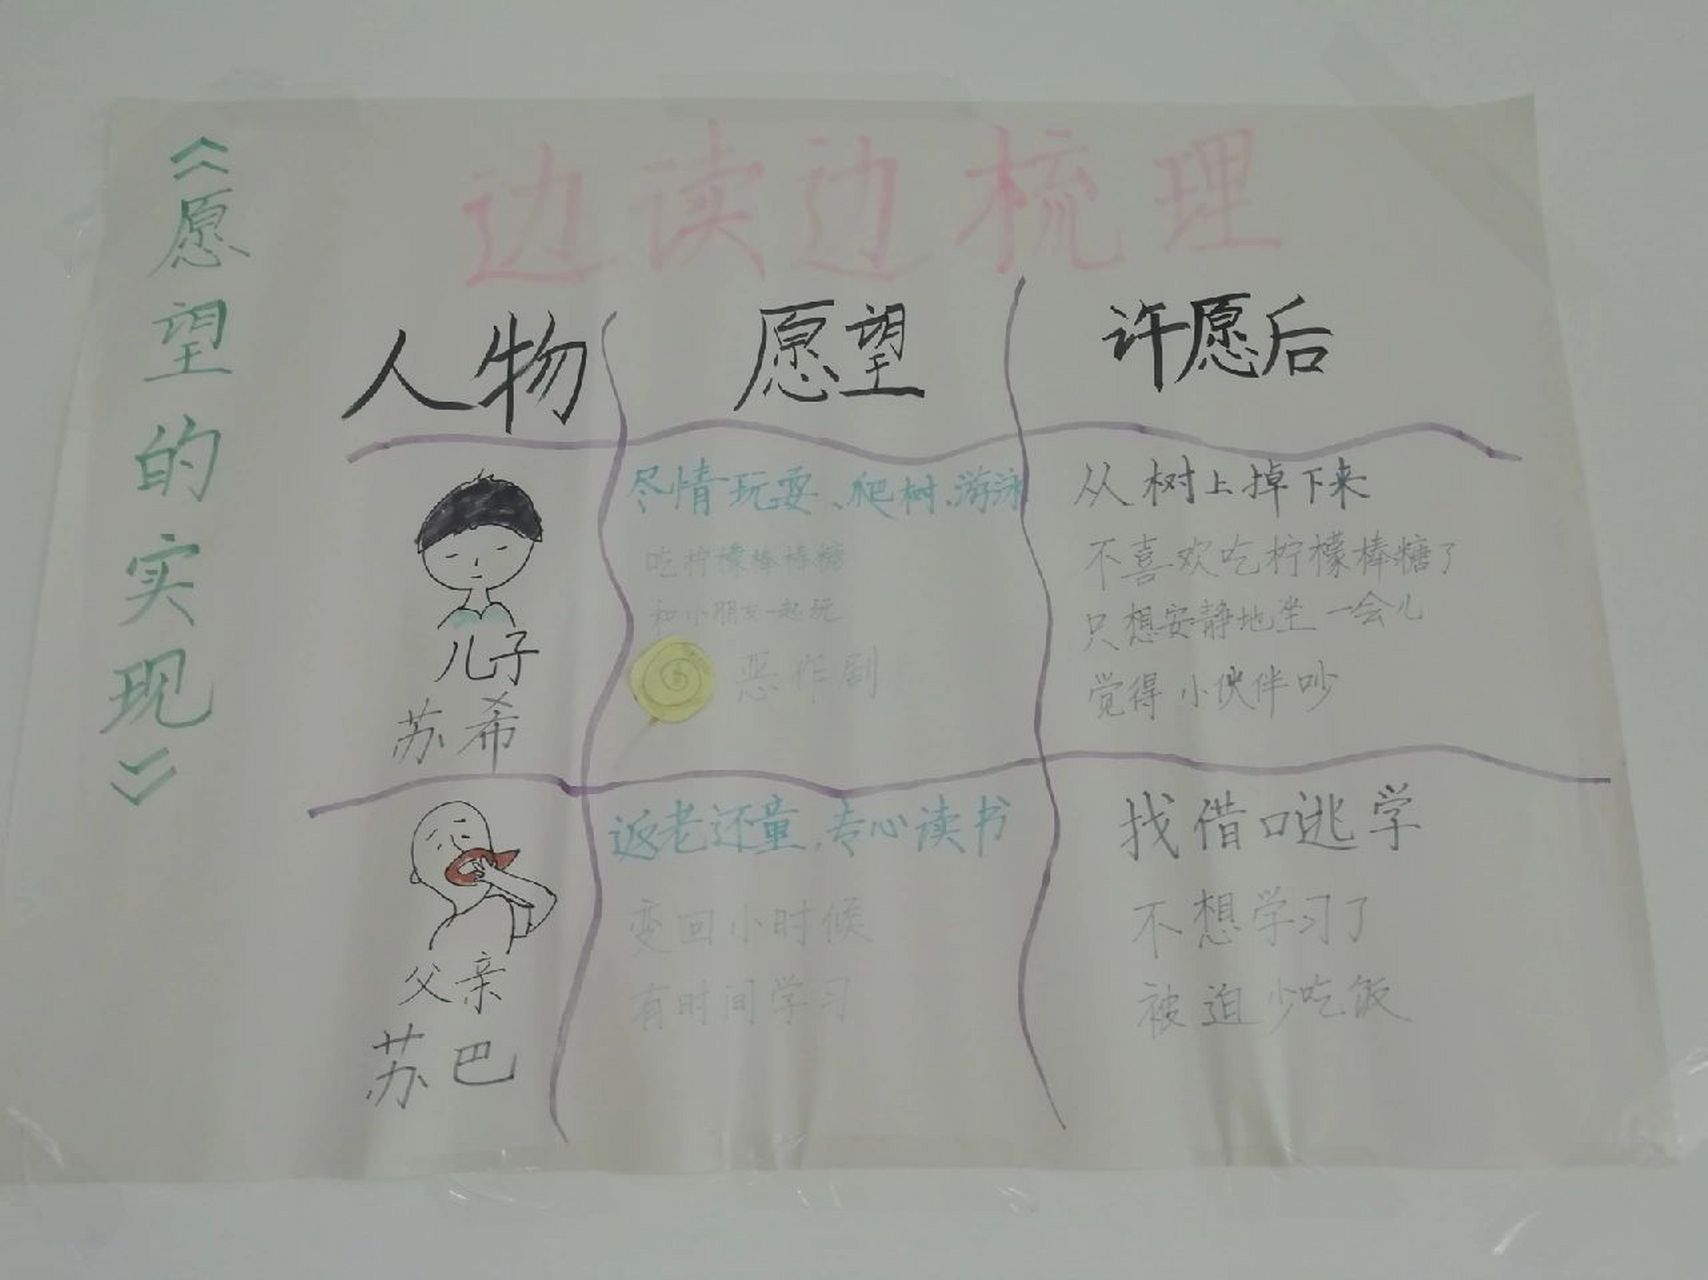 《愿望的实现》
边读边梳理
人物 愿望 许愿后
儿子
苏希
尽情玩耍、爬树、游泳
吃柠檬棒棒糖
和小朋友一起玩
恶作剧
从树上掉下来
不喜欢吃柠檬棒糖了
只想安静地坐一会儿
觉得小伙伴吵
父亲
苏巴
返老还童,专心读书
变回小时候
有时间学习
找借口逃学
不想学习了
被迫少吃饭